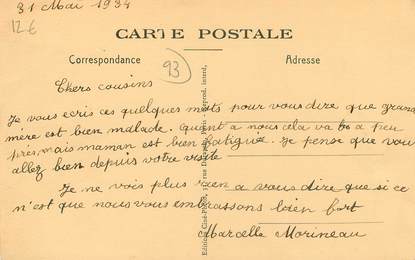 31 Mai 1934
12 €
CARTE POSTALE
Correspondance
93
Adresse
Chers cousins
Je vous ecris ces quelques mots pour vous dire que grand
mère est bien malade. Quent a nous cela va a peu
près mais maman est bien fatiguée. Je pense que vous
allez bien depuis votre visite
Je ne vois plus rien a vous dire que si ce
n'est que nous vous embrassons bien fort
Marcelle Morineau